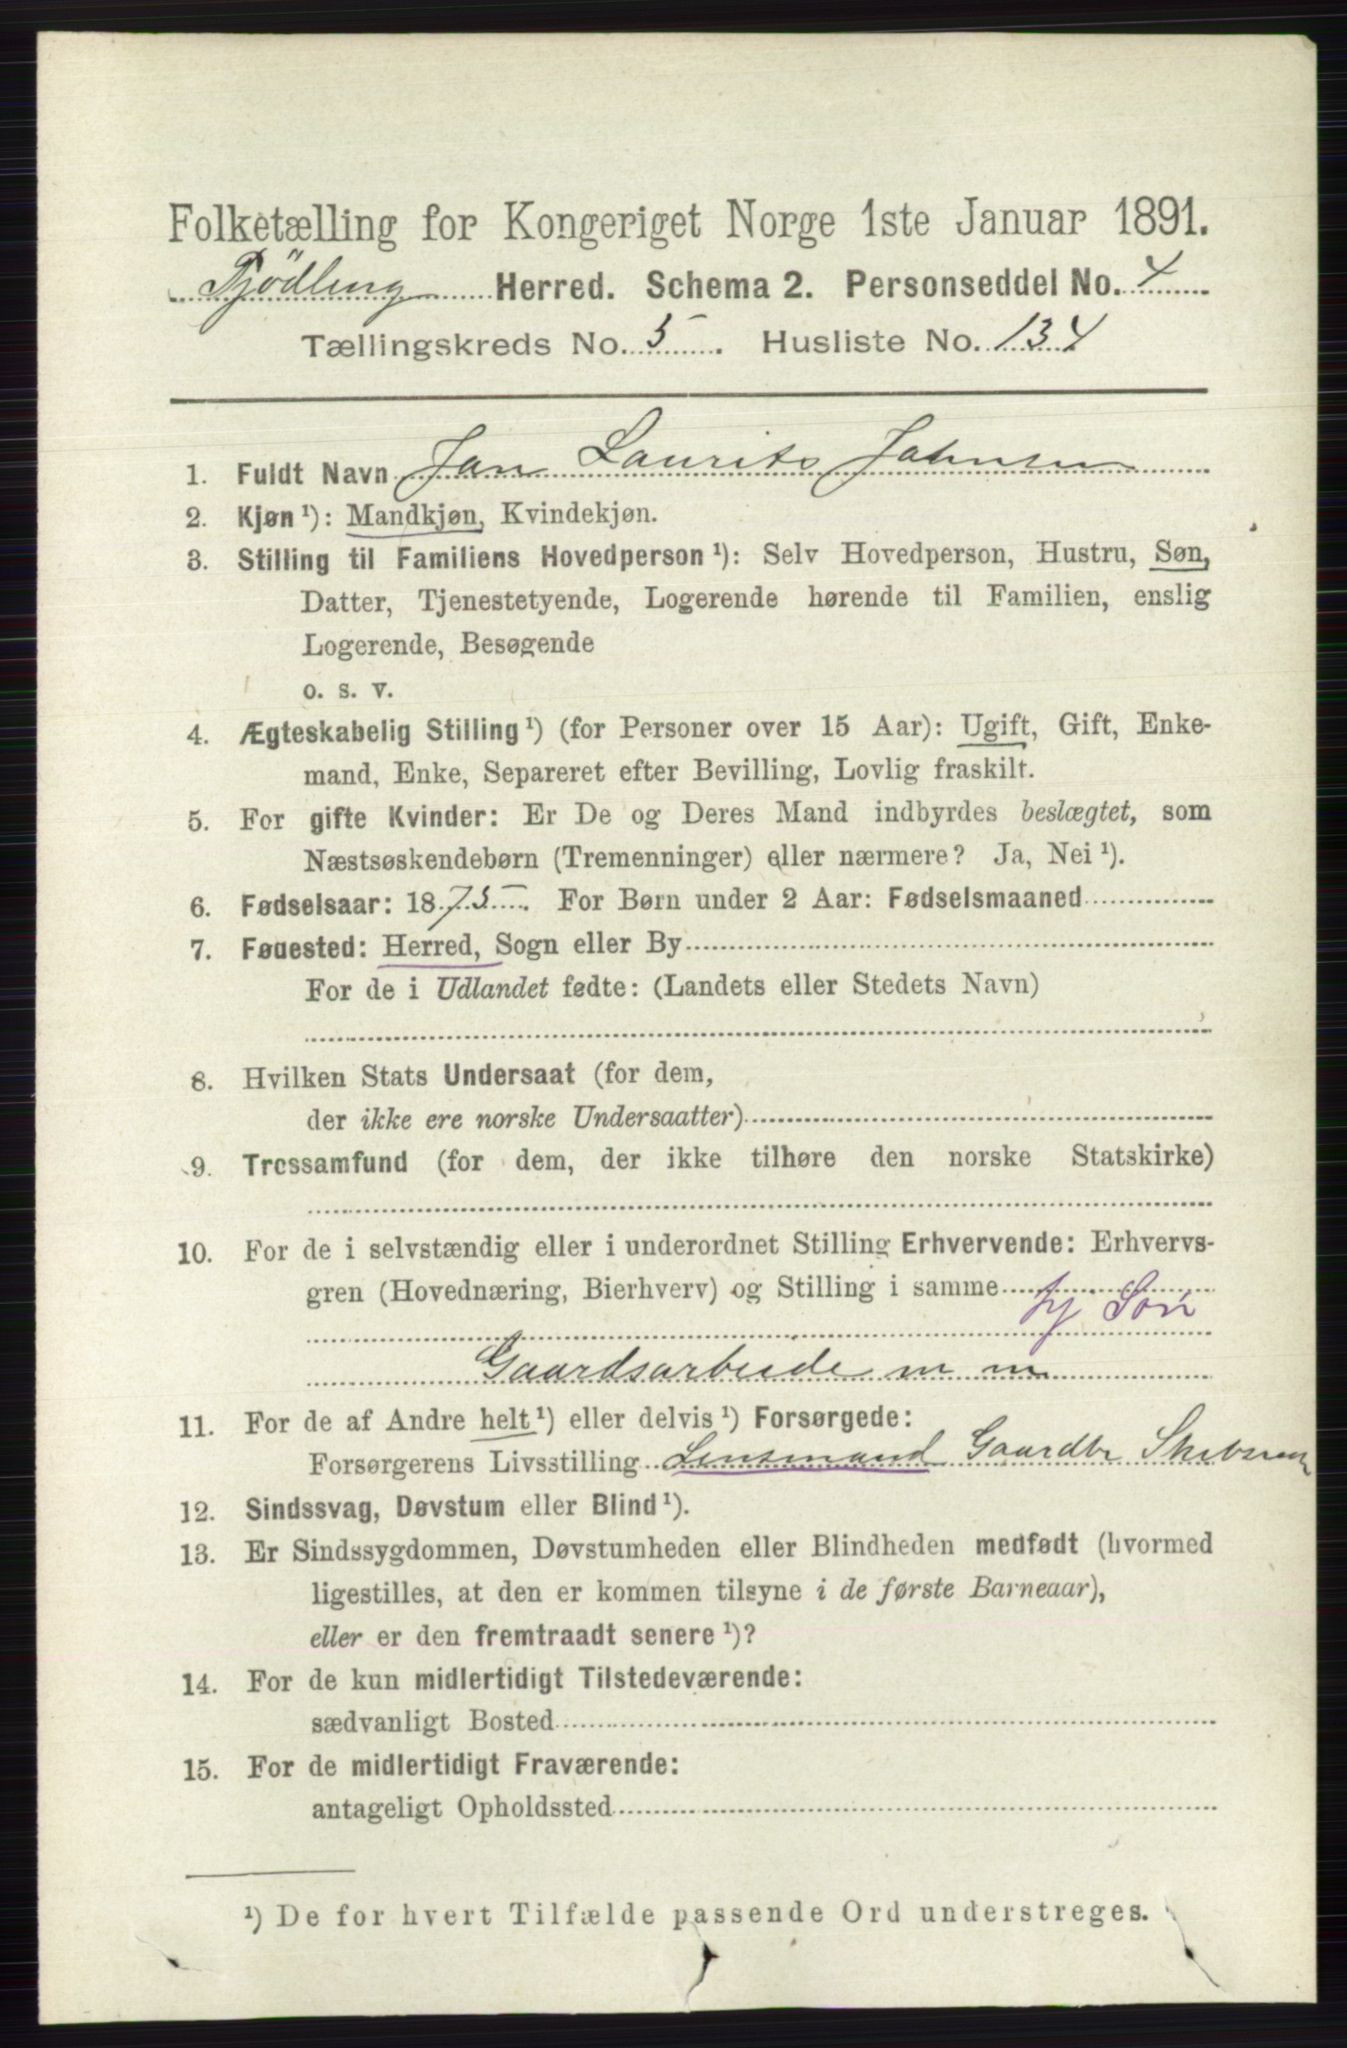 Folketælling for Kongeriget Norge 1ste Januar 1891.
Tjödling Herred. Schema 2. Personseddel No. 4
Tællingskreds No. 5. Husliste No. 134
1. Fuldt Navn Jan Laurits Jahnsen
2. Kjøn ¹): Mandkjøn, Kvindekjøn.
3. Stilling til Familiens Hovedperson ¹): Selv Hovedperson, Hustru, Søn,
Datter, Tjenestetyende, Logerende hørende til Familien, enslig
Logerende, Besøgende
o. s. v.
4. Ægteskabelig Stilling ¹) (for Personer over 15 Aar): Ugift, Gift, Enke-
mand, Enke, Separeret efter Bevilling, Lovlig fraskilt.
5. For gifte Kvinder: Er De og Deres Mand indbyrdes beslægtet, som
Næstsøskendebørn (Tremenninger) eller nærmere? Ja, Nei ¹).
6. Fødselsaar: 1875. For Børn under 2 Aar: Fødselsmaaned
7. Føuested: Herred, Sogn eller By
For de i Udlandet fødte: (Landets eller Stedets Navn)
8. Hvilken Stats Undersaat (for dem,
der ikke ere norske Undersaatter)
9. Trossamfund (for dem, der ikke tilhøre den norske Statskirke)
10. For de i selvstændig eller i underordnet Stilling Erhvervende: Erhvervs-
gren (Hovednæring, Bierhverv) og Stilling i samme
tj Søn
Gaardsarbeide m m
11. For de af Andre helt ¹) eller delvis ¹) Forsørgede:
Forsørgerens Livsstilling Lensmand Gaardbr
12. Sindssvag, Døvstum eller Blind ¹).
13. Er Sindssygdommen, Døvstumheden eller Blindheden medfødt (hvormed
ligestilles, at den er kommen tilsyne i de første Barneaar),
eller er den fremtraadt senere ¹)?
14. For de kun midlertidigt Tilstedeværende:
sædvanligt Bosted
15. For de midlertidigt Fraværende:
antageligt Opholdssted
¹) De for hvert Tilfælde passende Ord understreges.